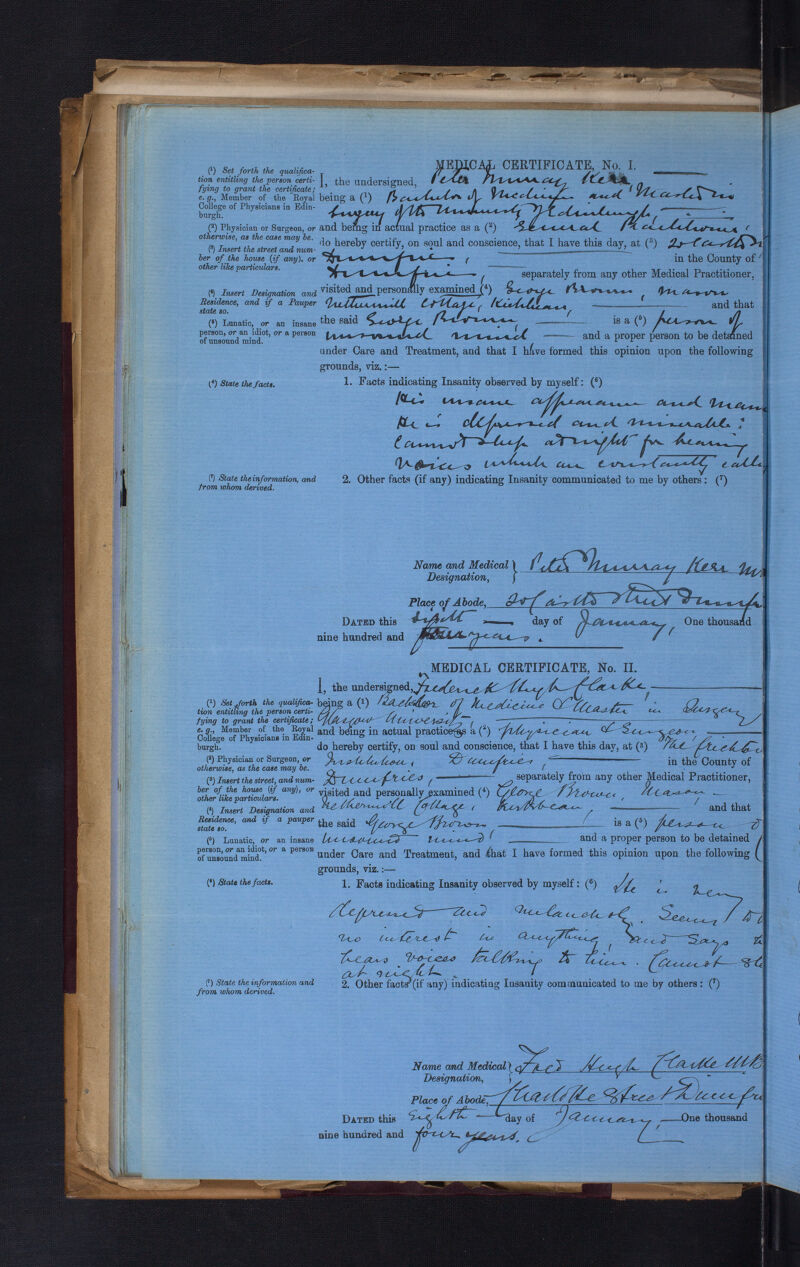 MEDICAL CERTIFICATE, No. I.
(¹) Set forth the qualifica-
tion entitling the person certi-
fying to grant the certificate;
e.g., Member of the Royal
College of Physicians in Edin-
burgh.
(²) Physician or Surgeon, or
otherwise, as the case may be.
(³) Insert the street and num-
ber of the house (if any), or
other like particulars.
(⁴) Insert Designation and
Residence, and if a Pauper
state so.
(⁵) Lunatic, or an insane
person, or an idiot, or a person
of unsound mind.
I, the undersigned, Peter Murray Kerr,
being a (¹) Bachelor of Medicine and Master in
Surgery of the University of Edinburgh,
and being in actual practice as a (²) General Practitioner,
do hereby certify, on soul and conscience, that I have this day, at (³) 20 Castle
Dumfries, in the County of
Dumfries, separately from any other Medical Practitioner,
visited and personally examined (⁴) George Brown, Mason
Nethermill Cottage, Kirkbean, and that
the said George Brown, is a (⁵) person of
unsound mind and a proper person to be detained
under Care and Treatment, and that I have formed this opinion upon the following
grounds, viz.:—
(⁶) State the facts.
1. Facts indicating Insanity observed by myself: (⁶)
His insane appearance and
He is depressed and miserable:
Cannot sleep at night for hearing
Voices which are constantly
(⁷) State the information, and
from whom derived.
2. Other facts (if any) indicating Insanity communicated to me by others: (⁷)
Name and Medical Designation, } Peter Murray Kerr
Place of Abode, 20 Castle Street
DATED this day of January, One thousand
nine hundred and four years.
MEDICAL CERTIFICATE, No. II.
(¹) Set forth the qualifica-
tion entitling the person certi-
fying to grant the certificate;
e.g., Member of the Royal
College of Physicians in Edin-
burgh.
(²) Physician or Surgeon, or
otherwise, as the case may be.
(³) Insert the street, and num-
ber of the house (if any), or
other like particulars.
(⁴) Insert Designation and
Residence, and if a pauper
state so.
(⁵) Lunatic, or an insane
person, or an idiot, or a person
of unsound mind.
I, the undersigned, Frederick Hugh Clarke,
being a (¹) Bachelor of Medicine & Master in Surgery
Glasgow University
and being in actual practice as a (²) physician & Surgeon,
do hereby certify, on soul and conscience, that I have this day, at (³) The Crichton
Institution, Dumfries, in the County of
Dumfries, separately from any other Medical Practitioner,
visited and personally examined (⁴) George Brown, Mason
Nethermill Cottage, Kirkbean, and that
the said George Brown is a (⁵) person
unsound mind and a proper person to be detained
under Care and Treatment, and that I have formed this opinion upon the following
grounds, viz.:—
(⁶) State the facts.
1. Facts indicating Insanity observed by myself: (⁶) He is very
depressed and melancholy. Seems
no interest in anything, and says
hears voices talking to him. Cannot
at night.
(⁷) State the information and
from whom derived.
2. Other facts (if any) indicating Insanity communicated to me by others: (⁷)
Name and Medical Designation, } Fred Hugh Clarke
Place of Abode, Charlotte Street
DATED this Eighth day of January, One thousand
nine hundred and four years.